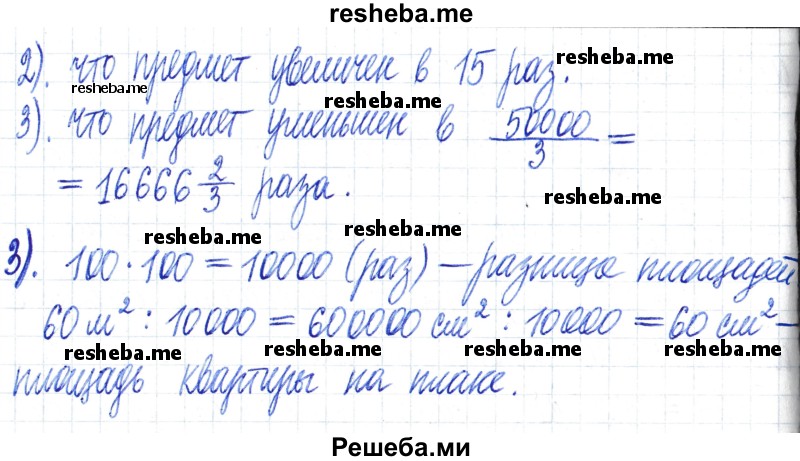 resheba.me
2). что предмет увеличен в 15 раз.
resheba.me
resheba.me
resheba.me
3). что предмет уменьшен в 50000/3 =
= 16666 2/3 раза.
resheba.me
resheba.me
resheba.me
3). 100·100 = 10000 (раз) – разница площадей
60 м² : 10000 = 600000 см² : 10000 = 60 см² –
resheba.me resheba.me resheba.me
площадь квартиры на плане.
Решеба.ми